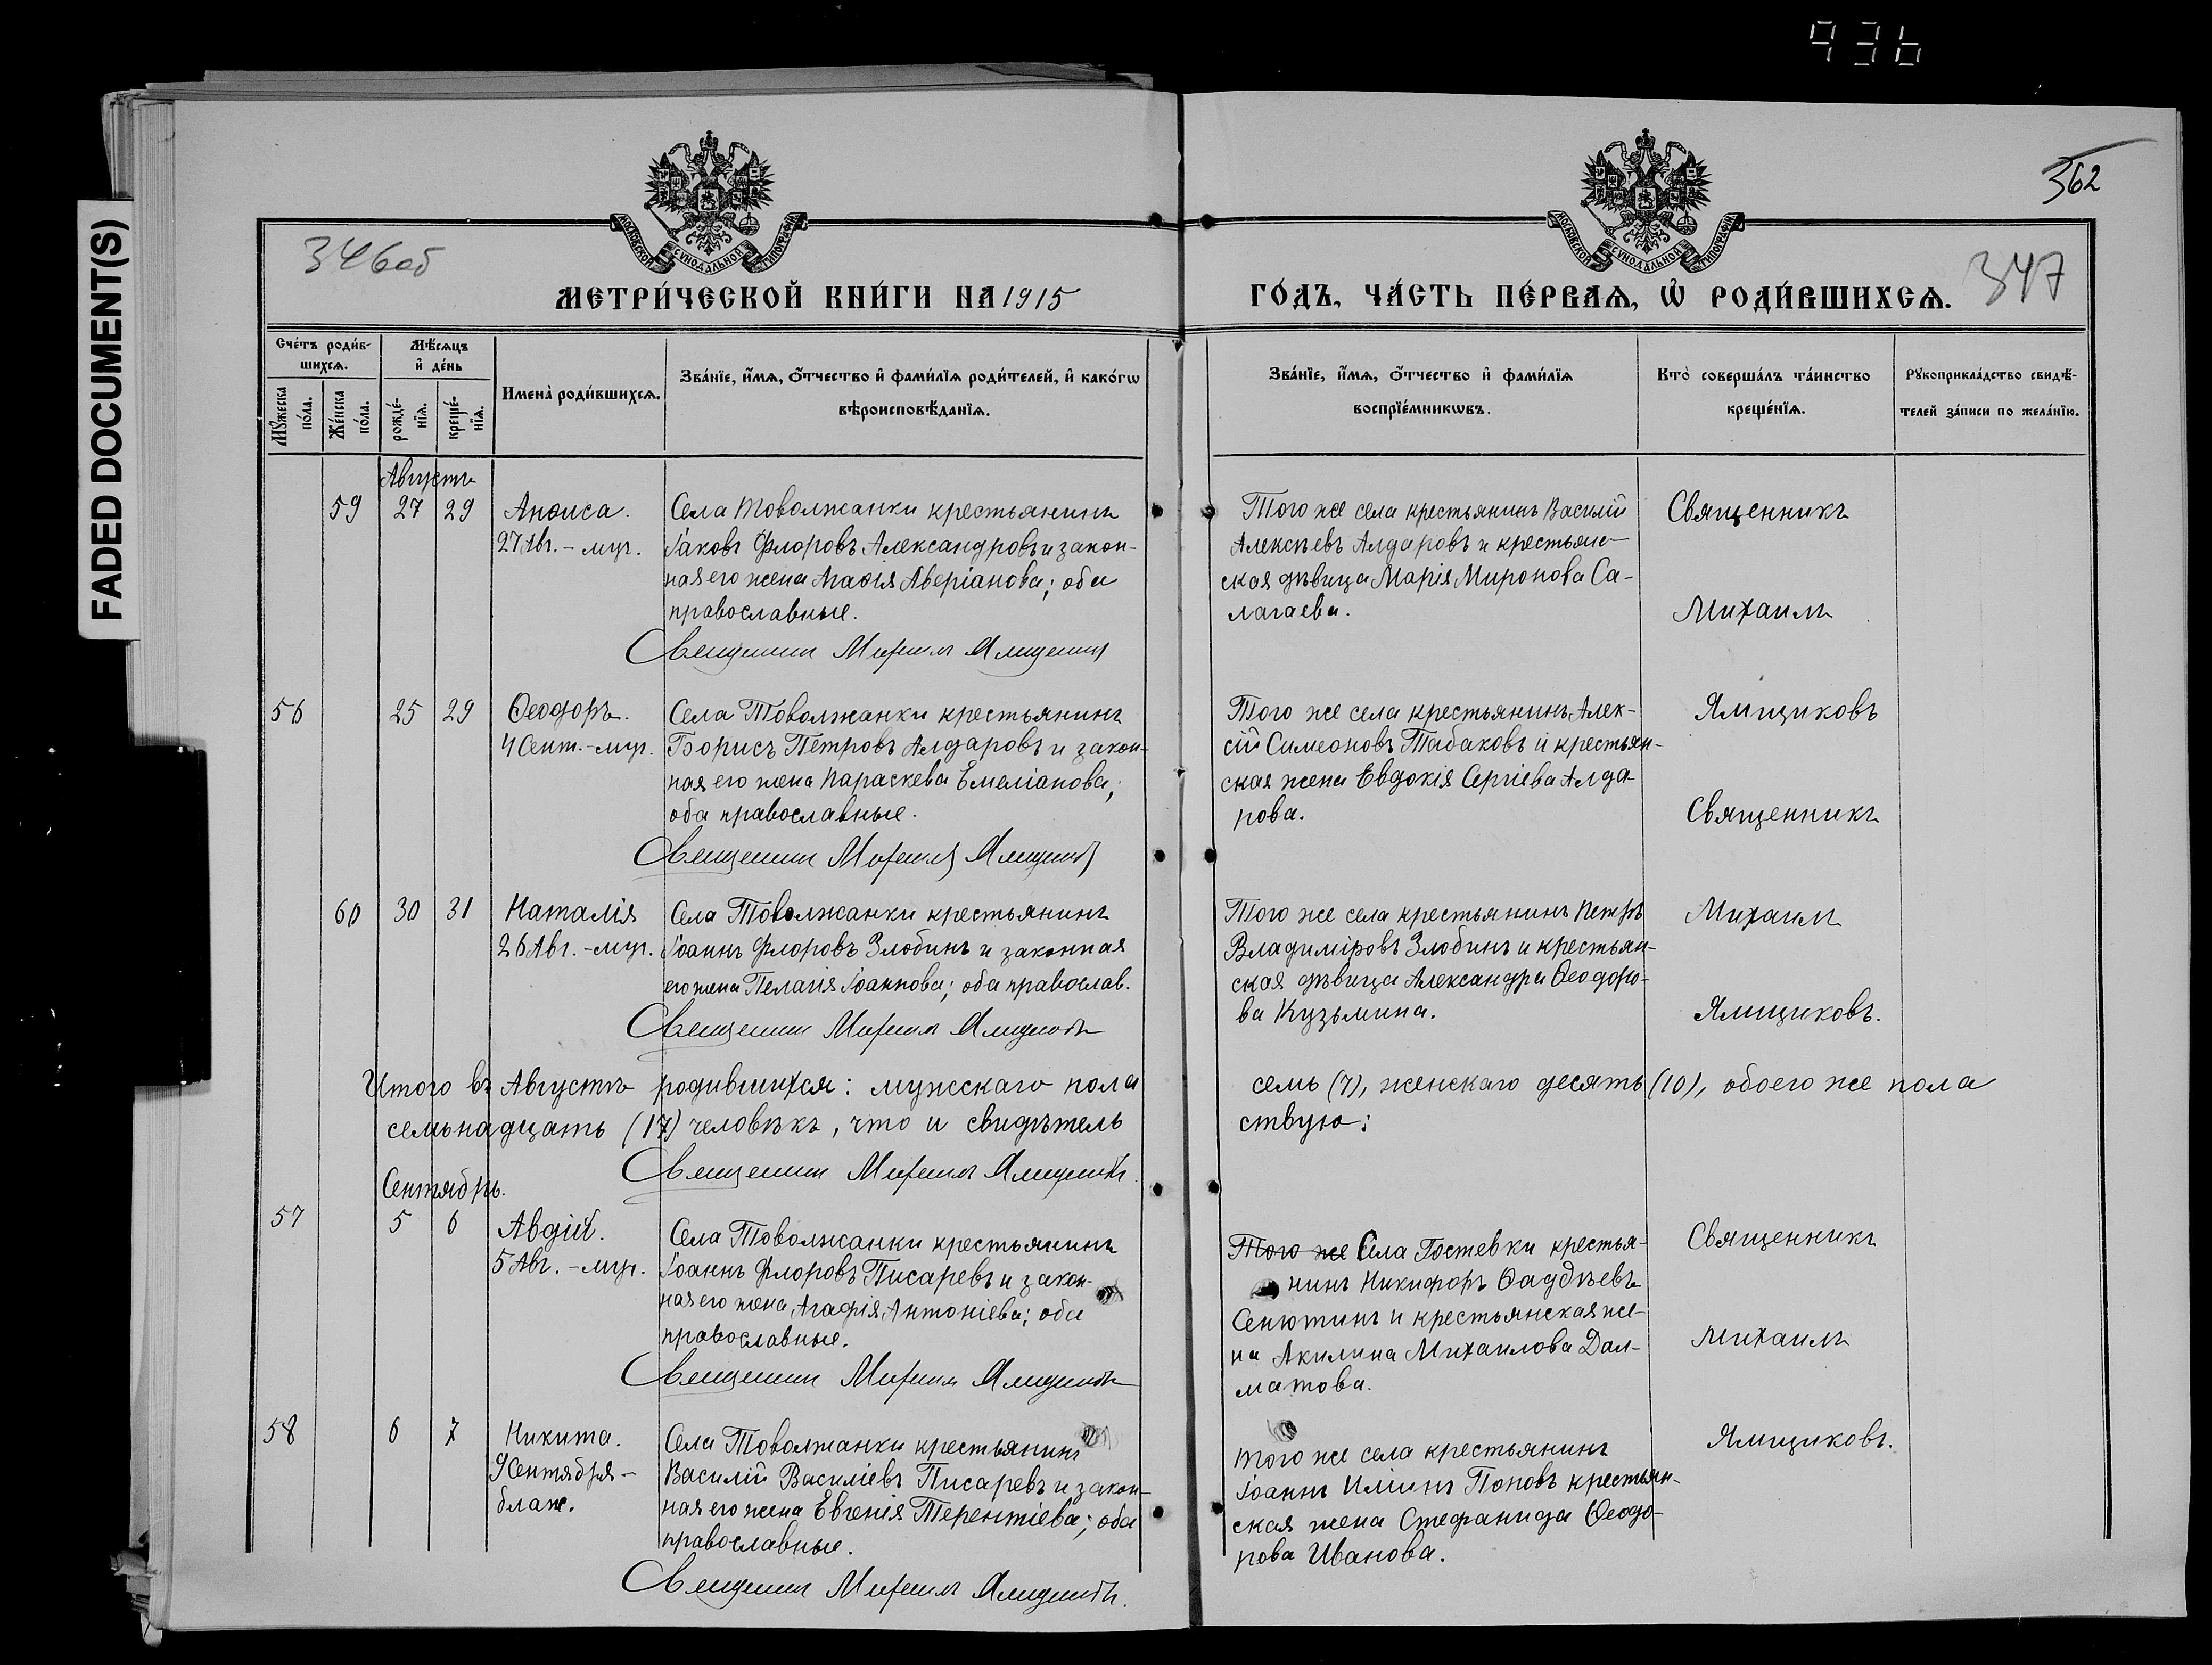 936
FADED DOCUMENT(S)
362
346об
347
МОСКОВСКОЙ СѴНОДАЛЬНОЙ ТИПОГРАФІИ
МОСКОВСКОЙ СѴНОДАЛЬНОЙ ТИПОГРАФІИ
МЕТРИ́ЧЕСКОЙ КНИ́ГИ НА 1915
ГО́ДЪ, ЧА́СТЬ ПЕ́РВАѦ, Ѡ҆ РОДИ́ВШИХСѦ.
Сче́тъ роди́в-
шихсѧ.
Мꙋ́жеска
по́ла.
Же́нска
по́ла.
Мѣ́сѧцъ
и҆ де́нь
рожде́-
нїѧ.
креще́-
нїѧ.
Имена̀ роди́вшихсѧ.
Зва́нїе, и҆́мѧ, ѻ҆́тчество и҆ фами́лїѧ роди́телей, и҆ како́гѡ
вѣроисповѣ́данїѧ.
Зва́нїе, и҆́мѧ, ѻ҆́тчество и҆ фами́лїѧ
воспрїе́мникѡвъ.
Кто̀ соверша́лъ та́инство
креще́нїѧ.
Рꙋкоприкла́дство свидѣ́-
телей за́писи по жела́нїю.
Августъ
59 27 29 Анѳиса.
27 Авг. – муч.
Села Товолжанки крестьянинъ
Іаковъ Флоровъ Александровъ и закон-
ная его жена Агаѳія Аверіанова; оба
православные.
Священникъ Михаилъ Ямщиковъ
Того же села крестьянинъ Василій
Алексѣевъ Алдаровъ и крестьян-
ская дѣвица Марія Миронова Са-
лагаева.
Священникъ
Михаилъ
56 25 29 Ѳеодоръ.
4 Сент. – муч.
Села Товолжанки крестьянинъ
Борисъ Петровъ Алдаровъ и закон-
ная его жена Параскева Емеліанова;
оба православные.
Священникъ Михаилъ Ямщиковъ
Того же села крестьянинъ Алек-
сій Симеоновъ Табаковъ и крестьян-
ская жена Евдокія Сергіева Алда-
рова.
Ямщиковъ
Священникъ
60 30 31 Наталія
26 Авг. – муч.
Села Товолжанки крестьянинъ
Іоаннъ Флоровъ Злобинъ и законная
его жена Пелагія Іоаннова; оба православ.
Священникъ Михаилъ Ямщиковъ
Того же села крестьянинъ Петръ
Владиміровъ Злобинъ и крестьян-
ская дѣвица Александра Ѳеодоро-
ва Кузьмина.
Михаилъ
Ямщиковъ.
Итого въ Августѣ родившихся: мужскаго пола семь (7), женскаго десять (10), обоего же пола
семьнадцать (17) человѣкъ, что и свидѣтель ствую:
Священникъ Михаилъ Ямщиковъ.
Сентябрь.
57 5 6 Авдій.
5 Авг. – муч.
Села Товолжанки крестьянинъ
Іоаннъ Флоровъ Писаревъ и закон-
ная его жена Агафія Антоніева; оба
православные.
Священникъ Михаилъ Ямщиковъ
Того же Села Гостевки крестья-
нинъ Никифоръ Ѳаддѣевъ
Сенютинъ и крестьянская же-
на Акилина Михаилова Дал-
матова.
Священникъ
Михаилъ
58 6 7 Никита.
9 Сентября –
блаж.
Села Товолжанки крестьянинъ
Василій Василіевъ Писаревъ и закон-
ная его жена Евгенія Терентіева; оба
православные.
Священникъ Михаилъ Ямщиковъ.
того же села крестьянинъ
Іоаннъ Иліинъ Поповъ крестьян-
ская жена Стефанида Ѳеодо-
рова Иванова.
Ямщиковъ.